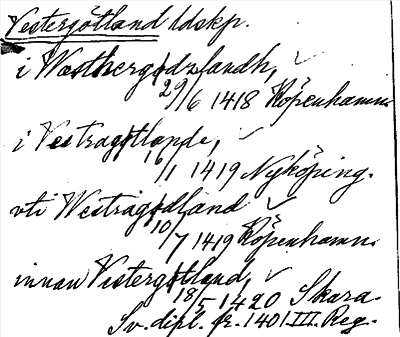 Vestergötland ldskp.
i Wæsthergødzlandh,
29/6 1418 Köpenhamn.
i Vestragøtlande,
16/1 1419 Nyköping.
vti Westragødland
10/7 1419 Köpenhamn.
innan Vestergøtland,
18/5 1420 Skara.
Sv. dipl. fr. 1401 III. Reg.